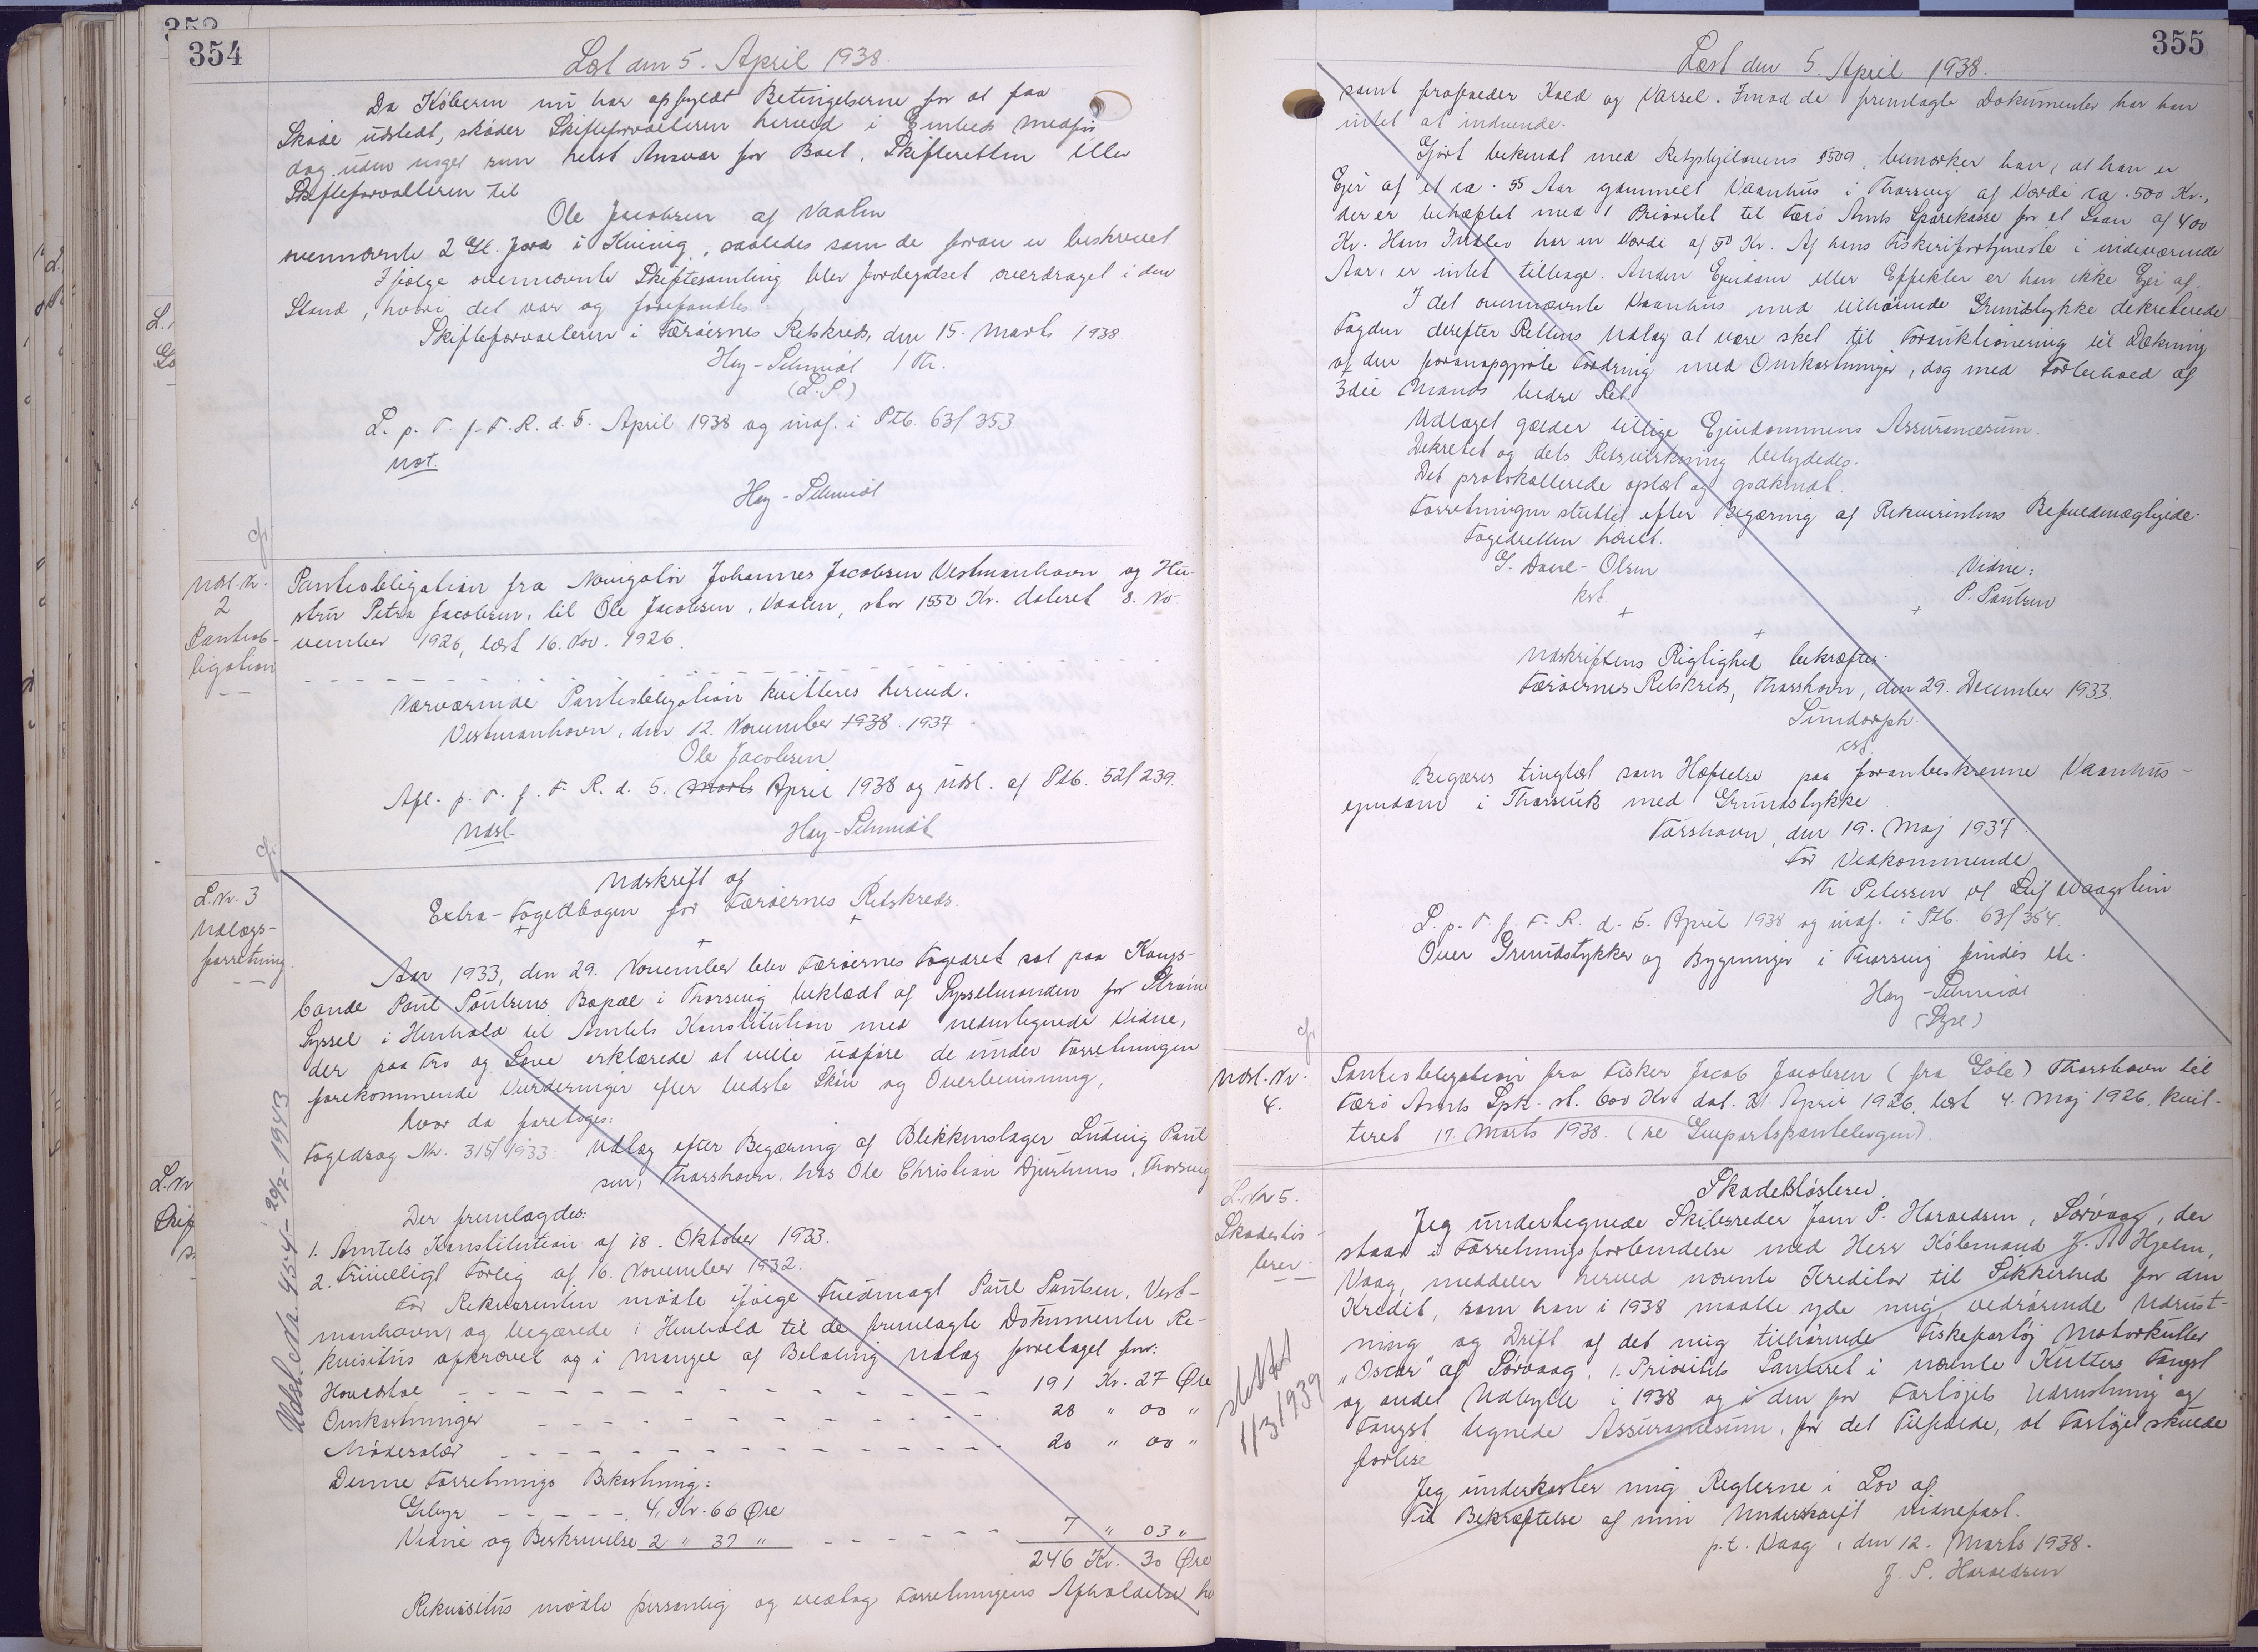 352
354
Læst den 5. April 1938.
Da Køberen nu har opfyldt Betingelserne for at faa
Skøde udstedt, skøder Skifteforvalteren herved i Embeds Medfør,
dog uden noget som helst Ansvar for Boet, Skifteretten eller
Skifteforvalteren til
Ole Jacobsen af Vaalen
ovennævnte 2 Gl. Jord i Kvivig, saaledes som de foran er beskrevet.
Ifølge ovennævnte Skiftesamling blev Jordegodset overdraget i den
Stand, hvori det var og forefandtes.
Skifteforvalteren i Færøernes Retskreds, den 15. Marts 1938.
Hey-Schmidt / Th.
(L.S.)
L. p. T. f. F. R. d. 5. April 1938 og indf. i Ptb. 63/353
not.
Hey-Schmidt
Udsl. Nr.
2
Pantob-
ligation
Pantobligation fra Navigatør Johannes Jacobsen Vestmanhavn og Hu-
stru Petra Jacobsen, til Ole Jacobsen, Vaalen, stor 1550 Kr. dateret 8. No-
vember 1926, læst 16. Nov. 1926.
Nærværende Pantobligation kvitteres herved.
Vestmanhavn, den 12. November 1938. 1937
Ole Jacobsen
Afl. p. T. f. F. R. d. 5. Marts April 1938 og udsl. af Ptb. 52/239.
Udsl.
Hey-Schmidt
L. Nr. 3
Udlægs-
forretning.
Udskrift af
Extra-Fogedbogen for Færøernes Retskreds.
Aar 1933, den 29. November blev Færøernes Fogedret sat paa Kongs-
bonde Poul Poulsens Bopæl i Thorsvig beklædt af Sysselmanden for Strømø
Syssel i Henhold til Amtets Konstitution med nedentegnede Vidne,
der paa Tro og Love erklærede at ville udføre de under Forretningen
forekommende Vurderinger efter bedste Skøn og Overbevisning,
hvor da foretoges:
Fogedsag Nr. 315/1933. Udlæg efter Begæring af Blikkenslager Ludvig Poul
sen, Thorshavn. hos Ole Christian Djurhuus, Thorsvig
Der fremlagdes:
1. Amtets Konstitution af 18. Oktober 1933.
2. Frivilligt Forlig af 16. November 1932.
For Rekvirenten mødte ifølge Fuldmagt Poul Poulsen, Vest-
manhavn, og begærede i Henhold til de fremlagte Dokumenter Re-
kvisitus afkrævet og i Mangel af Betaling Udlæg foretaget for:
Hovedstol - - - - - - 191 Kr. 27 Øre
Omkostninger - - - - - - 28 " 00 "
Mødesalær - - - - - - 20 " 00 "
Denne Forretnings Bekostning:
Gebyr - - - - - 4. Kr. 66 Øre
Vidne og Beskrivelse 2 " 37 " - - - - - 7 " 03 "
246 Kr. 30 Øre
Rekvisitus mødte personlig og vedtog Forretningens Afholdelse
Udsl. Nr. 454 - 20/7-1943
355
Læst den 5. April 1938.
samt frafalder Kald og Varsel. Imod de fremlagte Dokumenter har han
intet at indvende.
Gjort bekendt med Retsplejelovens §509, bemærker han, at han er
Ejer af et ca. 55 Aar gammelt Vaanhus i Thorsvig af Værdi ca. 500 Kr.,
der er behæftet med 1 Prioritet til Færø Amts Sparekasse for et Laan af 400
Kr. Hans Indbo har en Værdi af 50 Kr. Af hans Fiskerifortjeneste i indeværende
Aar, er intet tilbage. Anden Ejendom eller Effekter er han ikke Ejer af.
I det ovennævnte Vaanhus med tilhørende Grundstykke dekreterede
Fogden derefter Rettens Udlæg at være sket til Forauktionering til Dækning
af den foranopgjorte Fordring med Omkostninger, dog med Forbehold af
3die Mands bedre Ret.
Udlæget gælder tillige Ejendommens Assurancesum.
Dekretet og dets Retsvirkning betydedes.
Det protokollerede oplæst og godkendt.
Forretningen sluttet efter Begæring af Rekvirentens Befuldmægtigede.
Fogedretten hævet.
G. Dahl-Olsen
kst.
Vidne:
P. Poulsen
Udskriftens Rigtighed bekræfter.
Færøernes Retskreds, Thorshavn, den 29. December 1933.
Lundorph.
cst.
Begæres tinglæst som Hæftelse paa foranbeskrevne Vaanhus-
ejendom i Thorsvik med Grundstykke.
Tórshavn, den 19. Maj 1937.
For Vedkommende
Th. Petersen of Leif Waagstein
L. p. T. f. F. R. d. 5. April 1938 og indf. i Ptb. 63/354.
Over Grundstykker og Bygninger i Thorsvig findes ete.
Hey-Schmidt
Udsl. Nr.
4.
Pantobligation fra Fisker Jacob Jacobsen (fra Gøte) Thorshavn til
Færø Amts Spk. st. 600 Kr. dat. 21. April 1926, læst 4. Maj 1926. kvit-
teret 17. Marts 1938. (se Genpartspantebogen).
L. Nr 5.
Skadesløs-
brev.
Skadesløsbrev.
Jeg undertegnede Skibsreder Joen P. Haraldsen, Sørvaag, der
staar i Forretningsforbindelse med Herr Købmand J. A Hjelm,
Vaag, meddeler herved nævnte Kreditor til Sikkerhed for den
Kredit, som han i 1938 maatte yde mig, vedrørende Udrust-
ning og Drift af det mig tilhørende Fiskefartøj Motorkutter
"Oscar" af Sørvaag, 1. Prioritets Panteret i nævnte Kutters Fangst
og andet Udbytte i 1938 og i den for Fartøjets Udrustning og
Fangst tegnede Assurancesum, for det Tilfælde, at Fartøjet skulde
forlise
Jeg underkaster mig Reglerne i Lov af
Til Bekræftelse af min Underskrift vidnefast.
p.t. Vaag, den 12. Marts 1938.
J. P. Haraldsen
slettet
11/3 1939